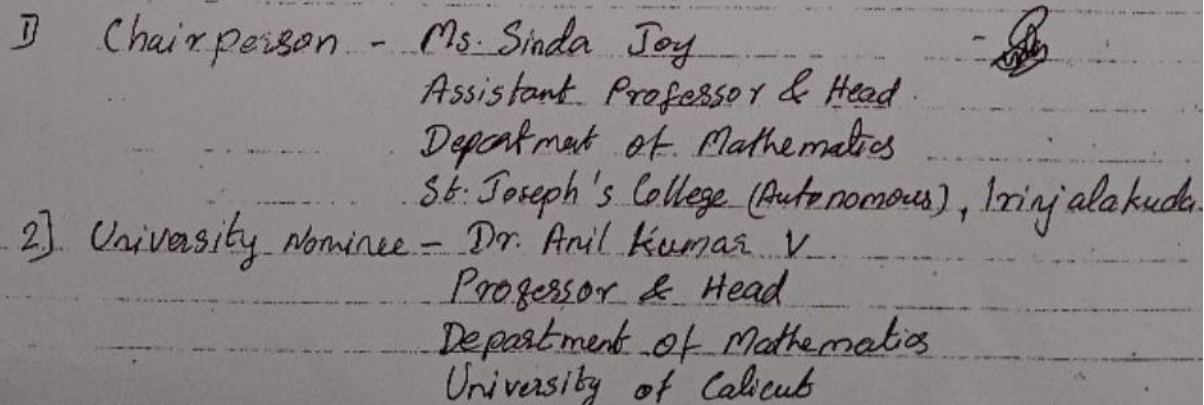 1] Chairperson - Ms. Sinda Joy -
Assistant Professor & Head
Department of Mathematics
St. Joseph's College (Autonomous), Irinjalakuda.
2] University Nominee - Dr. Anil Kumar V
Professor & Head
Department of Mathematics
University of Calicut